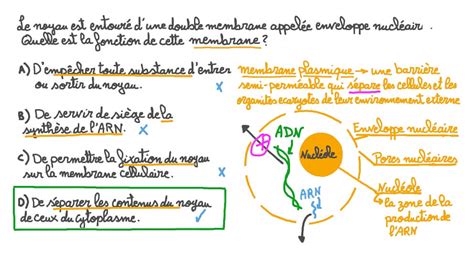 Le noyau est entouré d'une double membrane appelée enveloppe nucléair.
Quelle est la fonction de cette membrane ?
A) D'empêcher toute substance d'entrer
ou sortir du noyau.
B) De servir de siège de la
synthèse de l'ARN.
C) De permettre la fixation du noyau
sur la membrane cellulaire.
D) De séparer les contenus du noyau
de ceux du cytoplasme.
membrane plasmique → une barrière
semi-perméable qui sépare les cellules et les
organites eucaryotes de leur environnement externe
ADN
Nucléole
ARN
Enveloppe nucléaire
Pores nucléaires
Nucléole
↳ la zone de la
production de
l'ARN